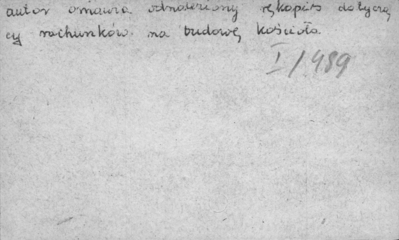 autor omawia odnaleziony rękopis dotyczą
cy rachunków na budowę kościoła.
I/489